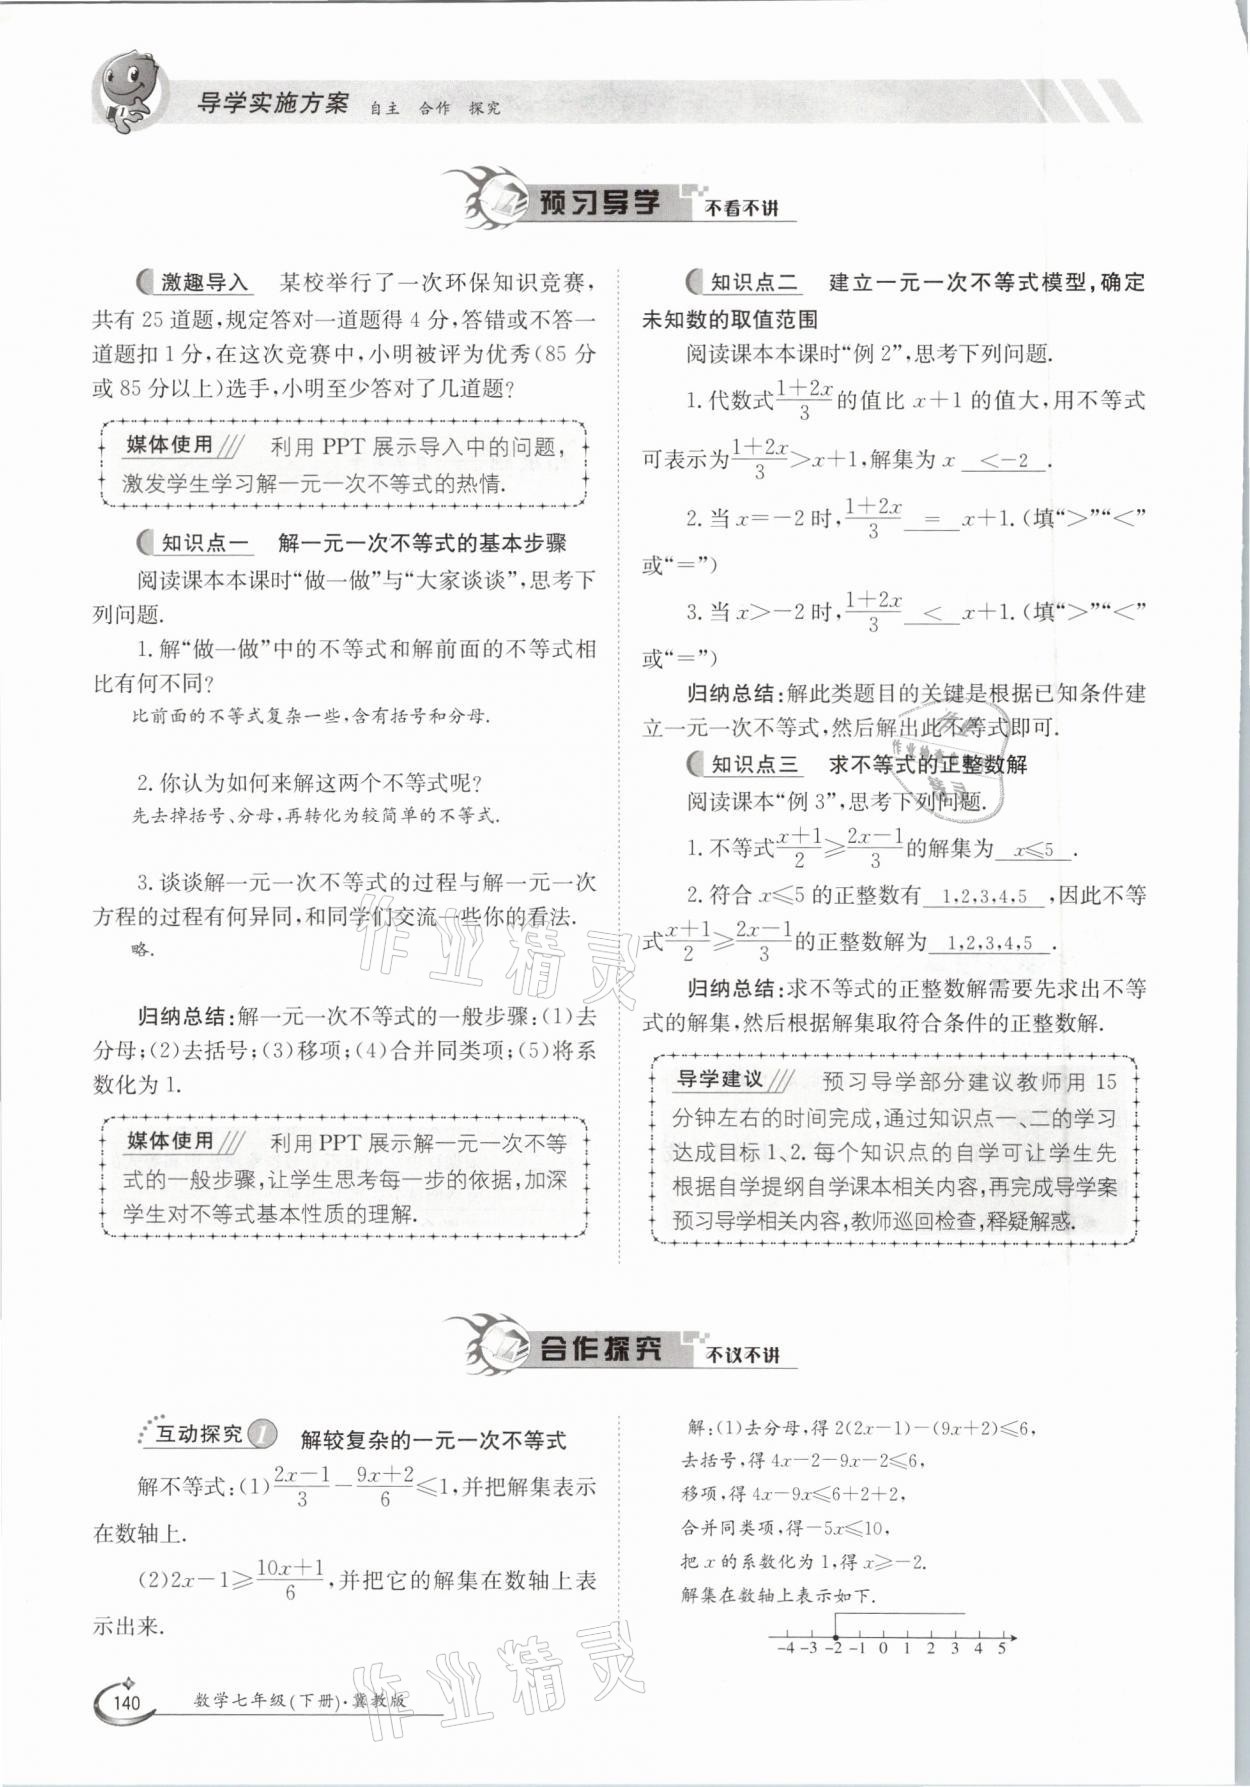 导学实施方案 自主 合作 探究
预习导学 不看不讲
激趣导入 某校举行了一次环保知识竞赛,
共有 25 道题,规定答对一道题得 4 分,答错或不答一
道题扣 1 分,在这次竞赛中,小明被评为优秀(85 分
或 85 分以上)选手,小明至少答对了几道题?
媒体使用 利用 PPT 展示导入中的问题,
激发学生学习解一元一次不等式的热情.
知识点一 解一元一次不等式的基本步骤
阅读课本本课时“做一做”与“大家谈谈”,思考下
列问题.
1. 解“做一做”中的不等式和解前面的不等式相
比有何不同?
比前面的不等式复杂一些,含有括号和分母.
2. 你认为如何来解这两个不等式呢?
先去掉括号、分母,再转化为较简单的不等式.
3. 谈谈解一元一次不等式的过程与解一元一次
方程的过程有何异同,和同学们交流一些你的看法.
略.
归纳总结:解一元一次不等式的一般步骤:(1)去
分母;(2)去括号;(3)移项;(4)合并同类项;(5)将系
数化为 1.
媒体使用 利用 PPT 展示解一元一次不等
式的一般步骤,让学生思考每一步的依据,加深
学生对不等式基本性质的理解.
知识点二 建立一元一次不等式模型,确定
未知数的取值范围
阅读课本本课时“例 2”,思考下列问题.
1. 代数式 (1+2x)/3 的值比 x+1 的值大,用不等式
可表示为 (1+2x)/3 >x+1,解集为 x <-2 .
2. 当 x=-2 时, (1+2x)/3 = x+1. (填“>”“<”
或“=”)
3. 当 x>-2 时, (1+2x)/3 < x+1. (填“>”“<”
或“=”)
归纳总结:解此类题目的关键是根据已知条件建
立一元一次不等式,然后解出此不等式即可.
知识点三 求不等式的正整数解
阅读课本“例 3”,思考下列问题.
1. 不等式 (x+1)/2 ≥ (2x-1)/3 的解集为 x≤5 .
2. 符合 x≤5 的正整数有 1,2,3,4,5 ,因此不等
式 (x+1)/2 ≥ (2x-1)/3 的正整数解为 1,2,3,4,5 .
归纳总结:求不等式的正整数解需要先求出不等
式的解集,然后根据解集取符合条件的正整数解.
导学建议 预习导学部分建议教师用 15
分钟左右的时间完成,通过知识点一、二的学习
达成目标 1、2. 每个知识点的自学可让学生先
根据自学提纲自学课本相关内容,再完成导学案
预习导学相关内容,教师巡回检查,释疑解惑.
合作探究 不议不讲
互动探究 1 解较复杂的一元一次不等式
解不等式:(1) (2x-1)/3 - (9x+2)/6 ≤1,并把解集表示
在数轴上.
(2)2x-1≥ (10x+1)/6 ,并把它的解集在数轴上表
示出来.
解:(1)去分母,得 2(2x-1)-(9x+2)≤6,
去括号,得 4x-2-9x-2≤6,
移项,得 4x-9x≤6+2+2,
合并同类项,得-5x≤10,
把 x 的系数化为 1,得 x≥-2.
解集在数轴上表示如下.
-4 -3 -2 -1 0 1 2 3 4 5
140 数学七年级(下册)·冀教版
作业精灵
作业精灵